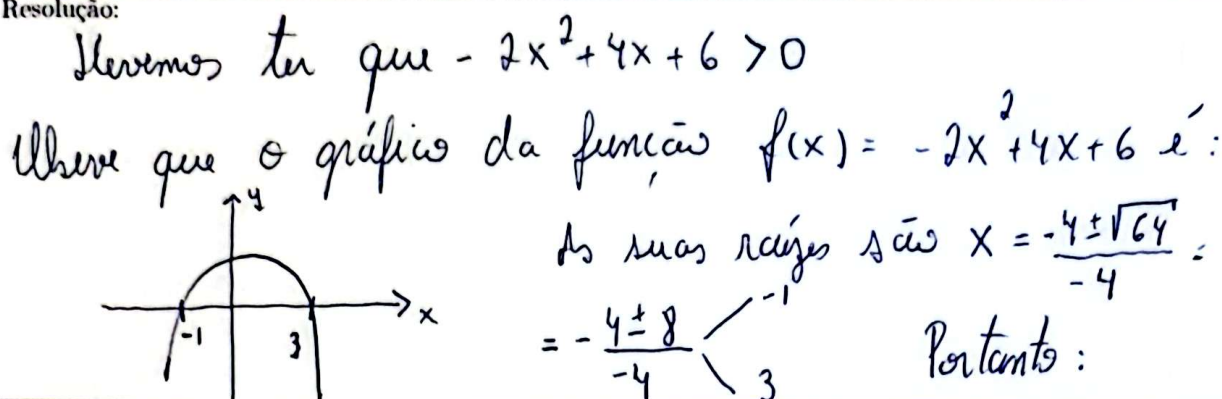 Resolução:
Devemos ter que - 2x² + 4x + 6 > 0
Observe que o gráfico da função f(x) = - 2x² + 4x + 6 é :
y
As suas raízes são x = \frac{-4 ± \sqrt{64}}{-4} =
x
-1
3
= - \frac{4 ± 8}{-4}
-1
3
Portanto :